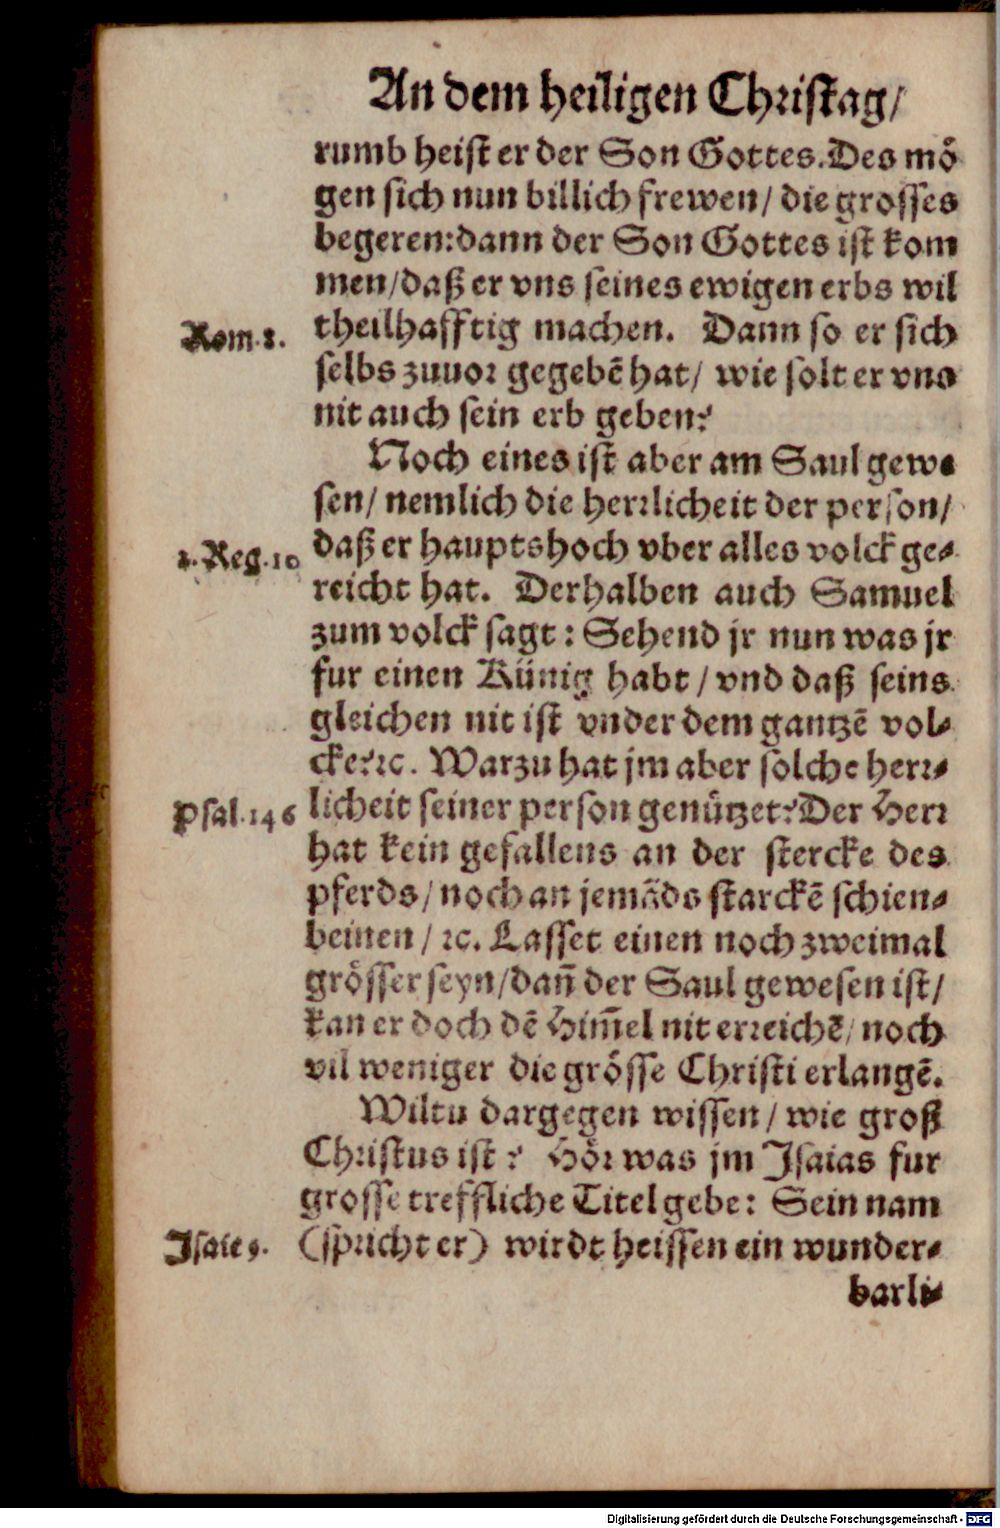 An dem heiligen Christag/
rumb heist er der Son Gottes. Des mö
gen sich nun billich frewen/ die grosses
begeren: dann der Son Gottes ist kom
men/ daß er vns seines ewigen erbs wil
Rom. 8. theilhafftig machen. Dann so er sich
selbs zuuor gegebẽ hat/ wie solt er vns
nit auch sein erb geben?
Noch eines ist aber am Saul gewe
sen/ nemlich die herrlicheit der person/
1. Reg. 10 daß er hauptshoch vber alles volck ge-
reicht hat. Derhalben auch Samuel
zum volck sagt: Sehend jr nun was jr
fur einen Künig habt/ vnd daß seins
gleichen nit ist vnder dem gantzẽ vol-
cke? ꝛc. Warzu hat jm aber solche herr-
Psal. 146 licheit seiner person genützet? Der Herr
hat kein gefallens an der stercke des
pferds/ noch an jemãds starckẽ schien-
beinen/ ꝛc. Lasset einen noch zweimal
grösser seyn/ dañ der Saul gewesen ist/
kan er doch dẽ Him̃el nit erreichẽ/ noch
vil weniger die grösse Christi erlangẽ.
Wiltu dargegen wissen/ wie groß
Christus ist? Hör was jm Isaias fur
grosse treffliche Titel gebe: Sein nam
Isaie 9. (spricht er) wirdt heissen ein wunder-
barli-
Digitalisierung gefördert durch die Deutsche Forschungsgemeinschaft - DFG